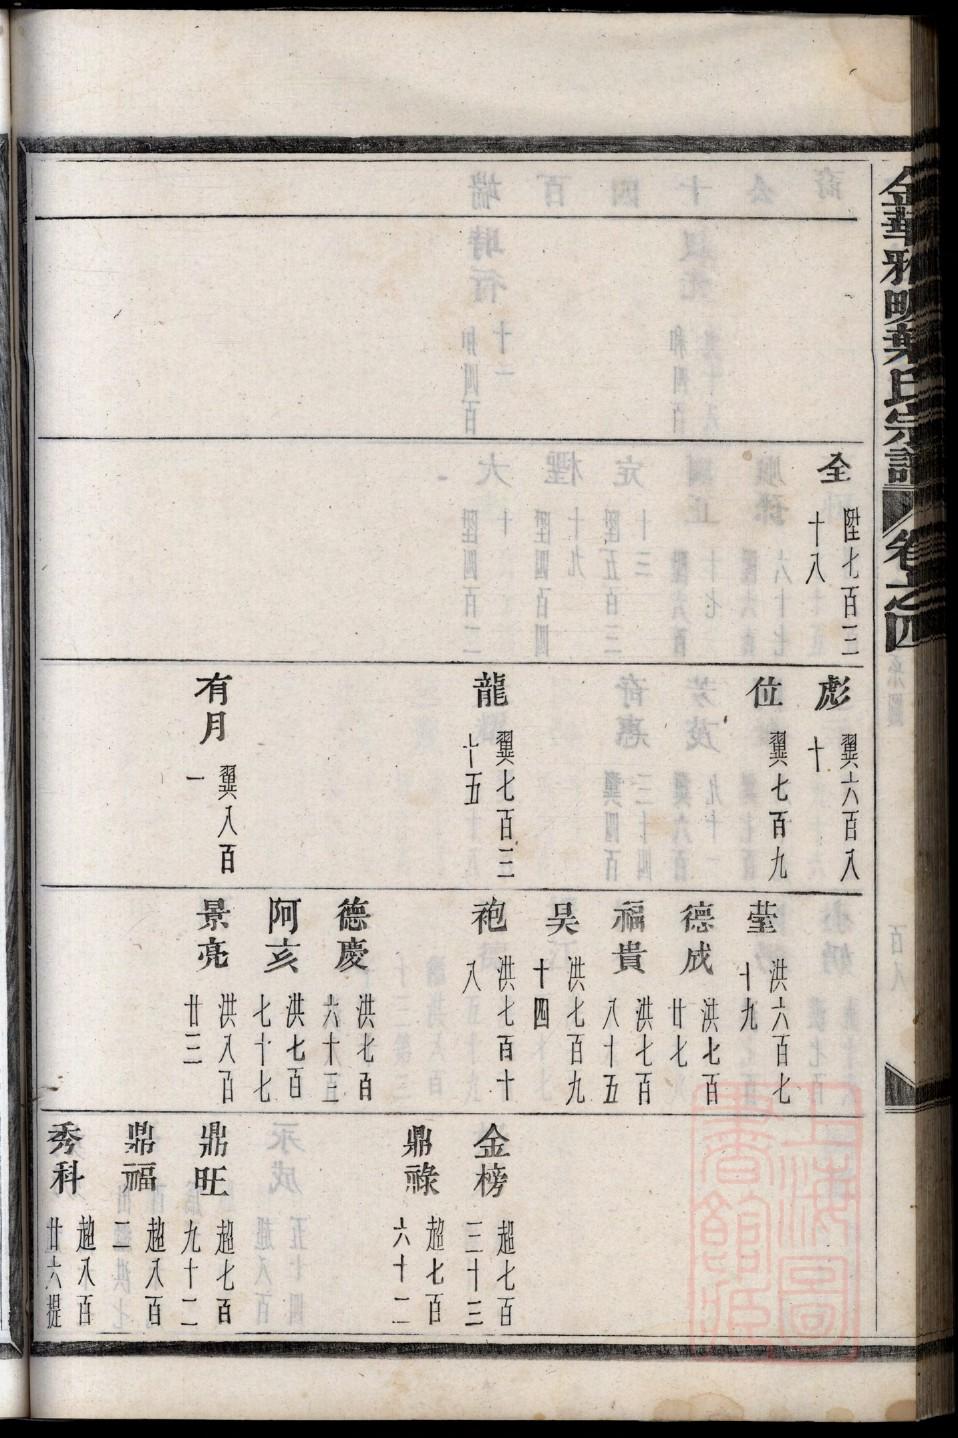 金華雅畈葉氏宗譜 卷之四
全 陞七百三十八
彪 翼六百八十
位 翼七百九
龍 翼七百三十五
有月 翼八百一
瑩 洪六百七十九
德成 洪七百廿七
福貴 洪七百八十五
吴 洪七百九十四
袍 洪七百十八
德慶 洪七百六十三
阿亥 洪七百七十七
景亮 洪八百廿三
金榜 超七百三十三
鼎祿 超七百六十二
鼎旺 超七百九十二
鼎福 超八百二
秀科 超八百廿六提
上海圖書館藏